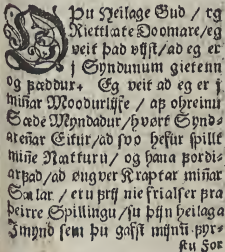 O Þu Heilage Gud / rg
Riettlate Doomare/eg
veit þad vijst/ad eg er
j Syndunum gietenn
og fæddur. Eg veit ad eg er j
miñar Moodurlijfe / af ohreinu
Sæde Myndadur/hvørt Synd-
areñar Eitur/ad svo hefur spillt
miñe Natturu/ og hana fordi-
arfad/ad engver Kraptar miñar
Sælar / eru frij nie frialser fra
þeirre Spillingu/su þijn heilaga
Jmynd sem þu gafst mijnū fyr-
stu For